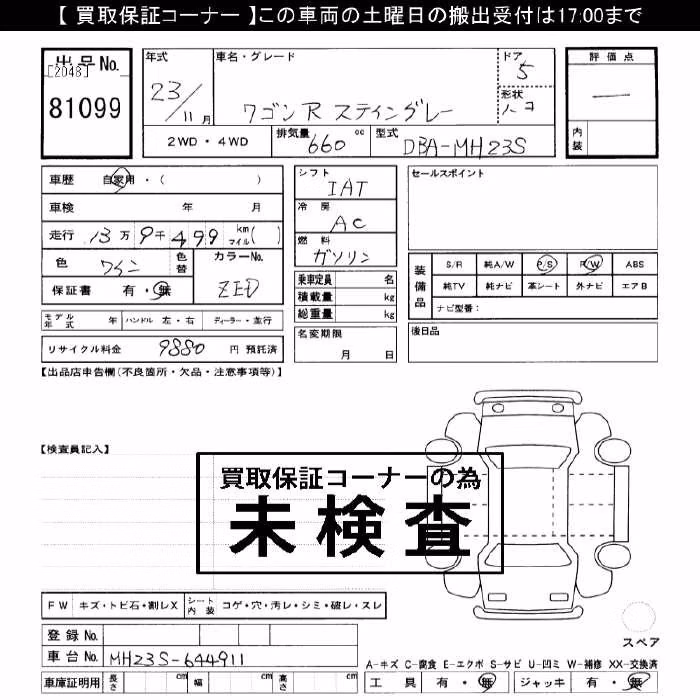 【 買取保証コーナー 】この車両の土曜日の搬出受付は17:00まで
出品No.
[2048]
81099
年式
23/11月
車名・グレード
ワゴンR スティングレー
ドア
5
形状
ハコ
評価点
―
内装
2WD・4WD
排気量 660 cc
型式 DBA-MH23S
車歴 自家用・( )
車検 年 月
走行 13万9千499 km マイル( )
色 ワイン
色替
カラーNo.
ZED
保証書 有・無
モデル年式 年 ハンドル 左・右 ディーラー・並行
リサイクル料金 9880 円 預託済
シフト
IAT
冷房
AC
燃料
ガソリン
乗車定員 名
積載量 kg
総重量 kg
名変期限
月 日
セールスポイント
装備品
S/R 純A/W P/S P/W ABS
純TV 純ナビ 革シート 外ナビ エアB
ナビ型番:
後日品
【出品店申告欄(不良箇所・欠品・注意事項等)】
【検査員記入】
買取保証コーナーの為
未検査
FW キズ・トビ石・割レX シート内装 コゲ・穴・汚レ・シミ・破レ・スレ
登録No.
車台No. MH23S-644911
車庫証明用 長さ cm 幅 cm 高さ cm
スペア
A-キズ C-腐食 E-エクボ S-サビ U-凹ミ W-補修 XX-交換済
工具 有・無 ジャッキ 有・無